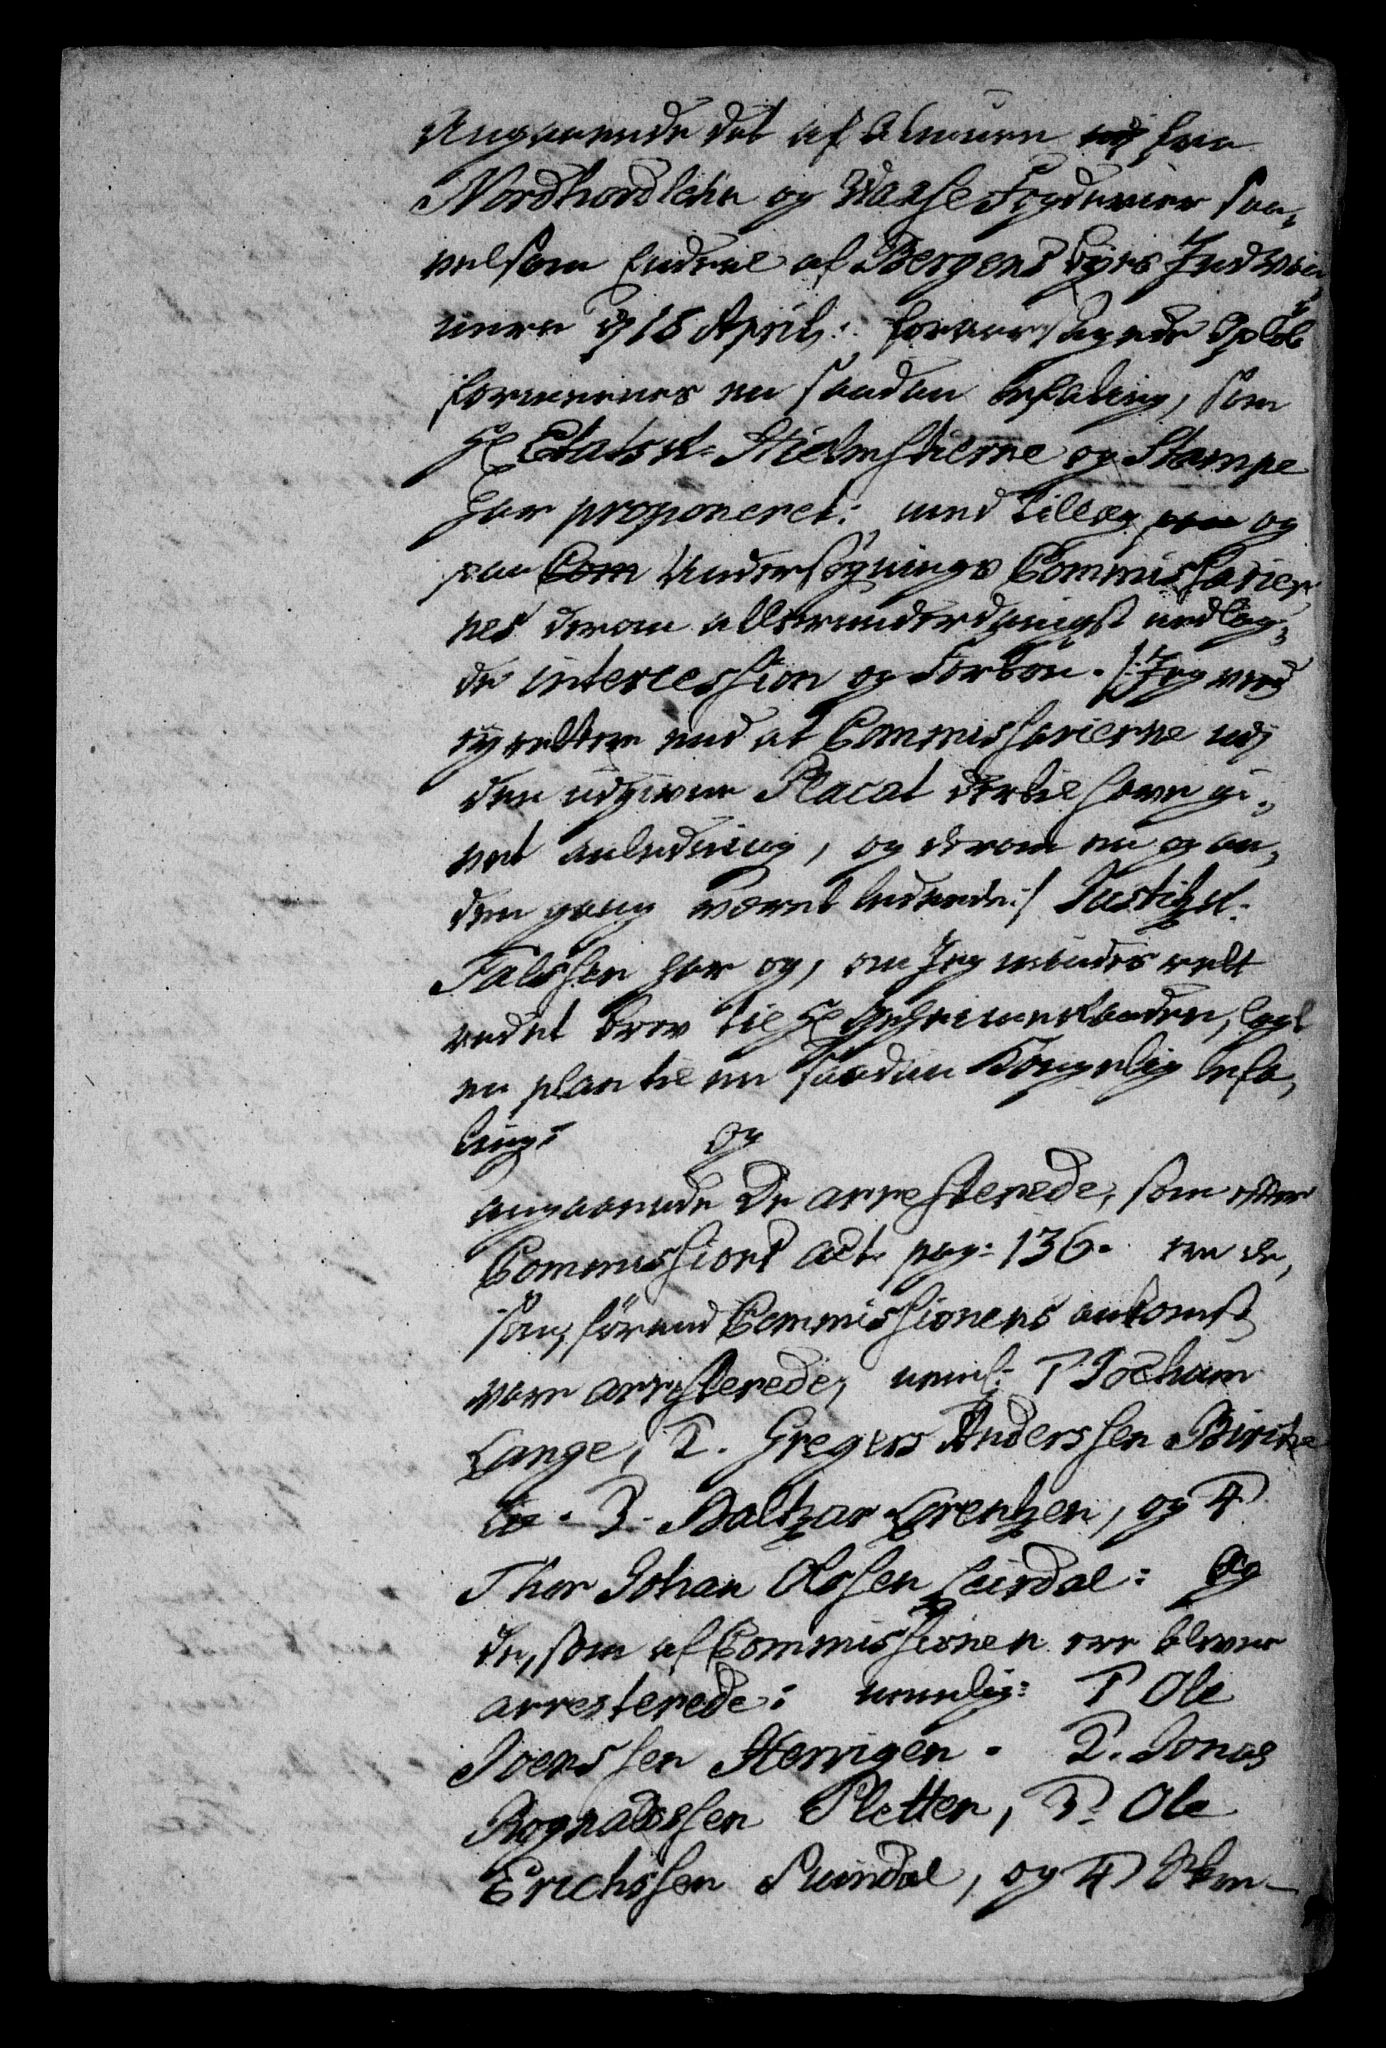 Angaaende det af Almuen fra
Nordhordlehn og Waase Fogderier saa-
velsom Endeel af Bergens Byes Indvaa-
nere d 18 April: foraarsagede Opløb
formeenes en saadan befaling, som
H Etatsr: Hielmstierne og Stampe
har proponeret: med Tillæg og
paa Undersøgnings Commissarier
nes derom allerunderdanigst nedlag-
de intercession og Forbøn. /: Jeg veed
ey rettere end at Commissarierne udj
den udgivne Placat dertil have gi-
vet anledning, og derom en og an-
den gang været :/ Justitzr:
Falssen har og, om Jeg mindes rett
udet brev til H Geheimeraaden, lagt
en plan til en saadan Kongelig befa-
ling: og
angaaende De arresterede, som efter
Commissions act pag: 136. ere de,
som, førend Commissionens ankomst
vare arresterede, neml: 1 Jochum
Lange, 2. Gregers Anderssen Bircke
3. Baltzar Lorentzen, og 4
Thor Johan Olssen Leirdal: Og
de, som af Commissionen ere blevne
arresterede: nemlig: 1 Ole
Joenssen Herrigen. 2. Jonas
Rognaldssen Pletten, 3. Ole
Erichssen Sundal, og 4